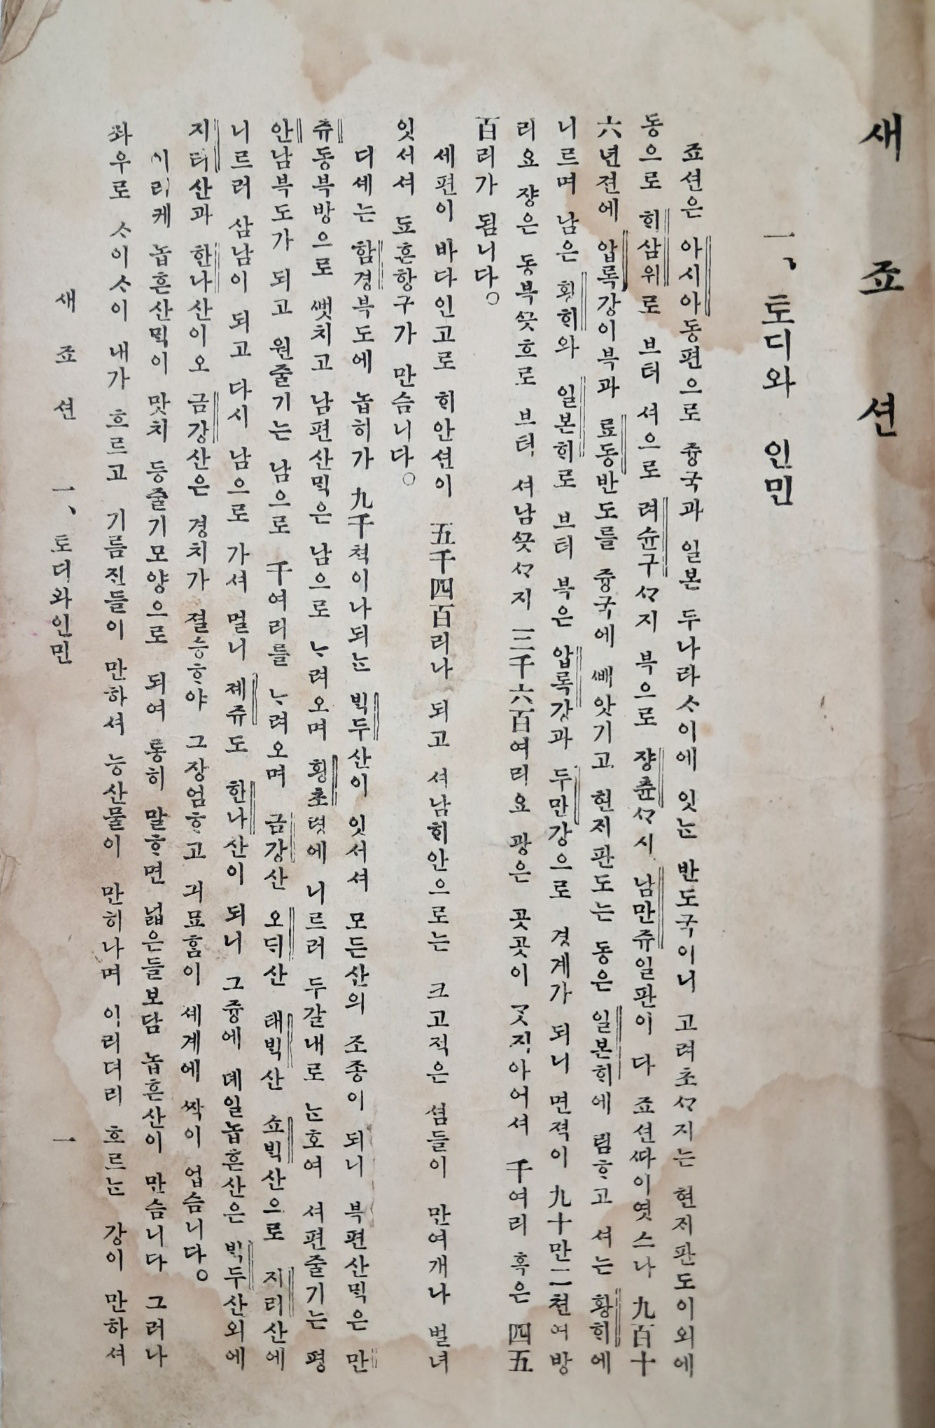 새 죠 션
一、 토디와 인민
죠션은 아시아동편으로 즁국과 일본 두나라ᄉᆞ이에 잇ᄂᆞᆫ 반도국이니 고려초ᄭᆞ지는 현ᄌᆡ판도이외에
동으로 ᄒᆡ삼위로 브터 셔으로 려슌구ᄭᆞ지 북으로 쟝츈ᄭᆞ시 남만쥬일판이 다 죠션ᄯᅡ이엿스나 九百十
六년젼에 압록강이북과 료동반도를 즁국에 ᄲᅢ앗기고 현ᄌᆡ판도는 동은 일본ᄒᆡ에 림ᄒᆞ고 셔는 황ᄒᆡ에
니르며 남은 황ᄒᆡ와 일본ᄒᆡ로 브터 북은 압록강과 두만강으로 경계가 되니 면젹이 九十만二쳔여방
리요 쟝은 동북ᄭᅳᆺ흐로 브터 셔남ᄭᅳᆺᄭᆞ지 三千六百여리요 광은 곳곳이 ᄀᆞᆺ지아어셔 千여리 혹은 四五
百리가 됨니다。
세편이 바다인고로 ᄒᆡ안션이 五千四百리나 되고 셔남ᄒᆡ안으로는 크고적은 셤들이 만여개나 벌녀
잇서셔 됴흔항구가 만슴니다。
디셰는 함경북도에 놉히가 九千쳑이나되ᄂᆞᆫ ᄇᆡᆨ두산이 잇서셔 모든산의 조종이 되니 북편산ᄆᆡᆨ은 만
쥬동북방으로 ᄲᅥᆺ치고 남편산ᄆᆡᆨ은 남으로 ᄂᆞ려오며 황초령에 니르러 두갈내로 ᄂᆞᆫ호여 셔편줄기는 평
안남북도가 되고 원줄기는 남으로 千여리를 ᄂᆞ려오며 금강산 오ᄃᆡ산 태ᄇᆡᆨ산 쇼ᄇᆡᆨ산으로 지리산에
니르러 삼남이 되고 다시 남으로 가셔 멀니 졔쥬도 한나산이 되니 그즁에 뎨일놉흔산은 ᄇᆡᆨ두산외에
지리산과 한나산이오 금강산은 경치가 졀승ᄒᆞ야 그장엄ᄒᆞ고 긔묘ᄒᆞᆷ이 셰계에 ᄶᅡᆨ이 업슴니다。
이러케 놉흔산ᄆᆡᆨ이 맛치 등줄기모양으로 되여 통히 말ᄒᆞ면 넓은들보담 놉흔산이 만슴니다 그러나
좌우로 ᄉᆞ이ᄉᆞ이 내가 흐르고 기름진들이 만하셔 능산물이 만히나며 이리뎌리 흐르ᄂᆞᆫ 강이 만하셔
새 죠 션 一、 토디와인민 一